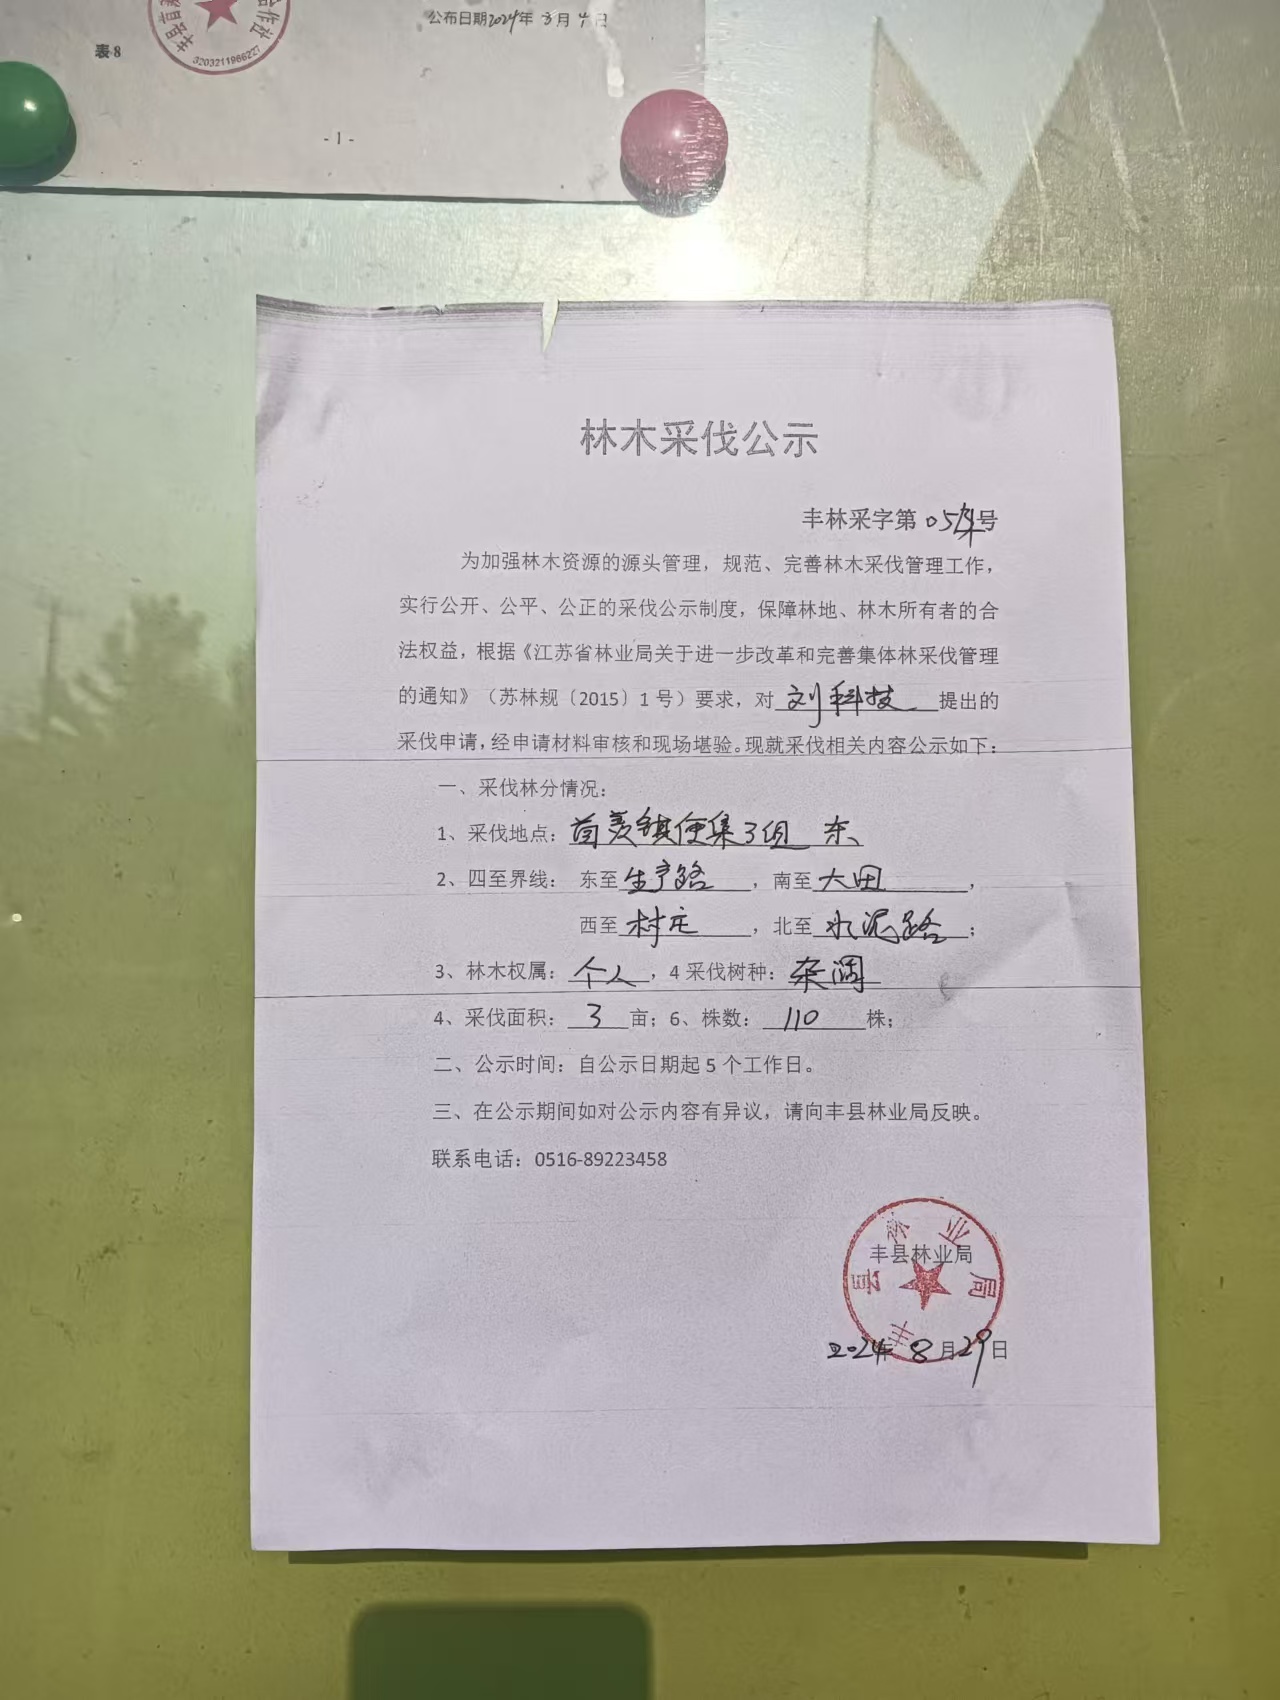 公布日期2024年3月4日
表8
3203211986227
-1-
林木采伐公示
丰林采字第05号
为加强林木资源的源头管理，规范、完善林木采伐管理工作，
实行公开、公平、公正的采伐公示制度，保障林地、林木所有者的合
法权益，根据《江苏省林业局关于进一步改革和完善集体林采伐管理
的通知》（苏林规〔2015〕1号）要求，对刘科技提出的
采伐申请，经申请材料审核和现场堪验。现就采伐相关内容公示如下：
一、采伐林分情况：
1、采伐地点：首羡镇便集3组 东
2、四至界线： 东至生产路，南至大田，
西至村庄，北至水泥路；
3、林木权属：个人，4采伐树种：杂阔
4、采伐面积：3亩；6、株数：110株；
二、公示时间：自公示日期起5个工作日。
三、在公示期间如对公示内容有异议，请向丰县林业局反映。
联系电话：0516-89223458
丰县林业局
丰县林业局
2024年8月29日